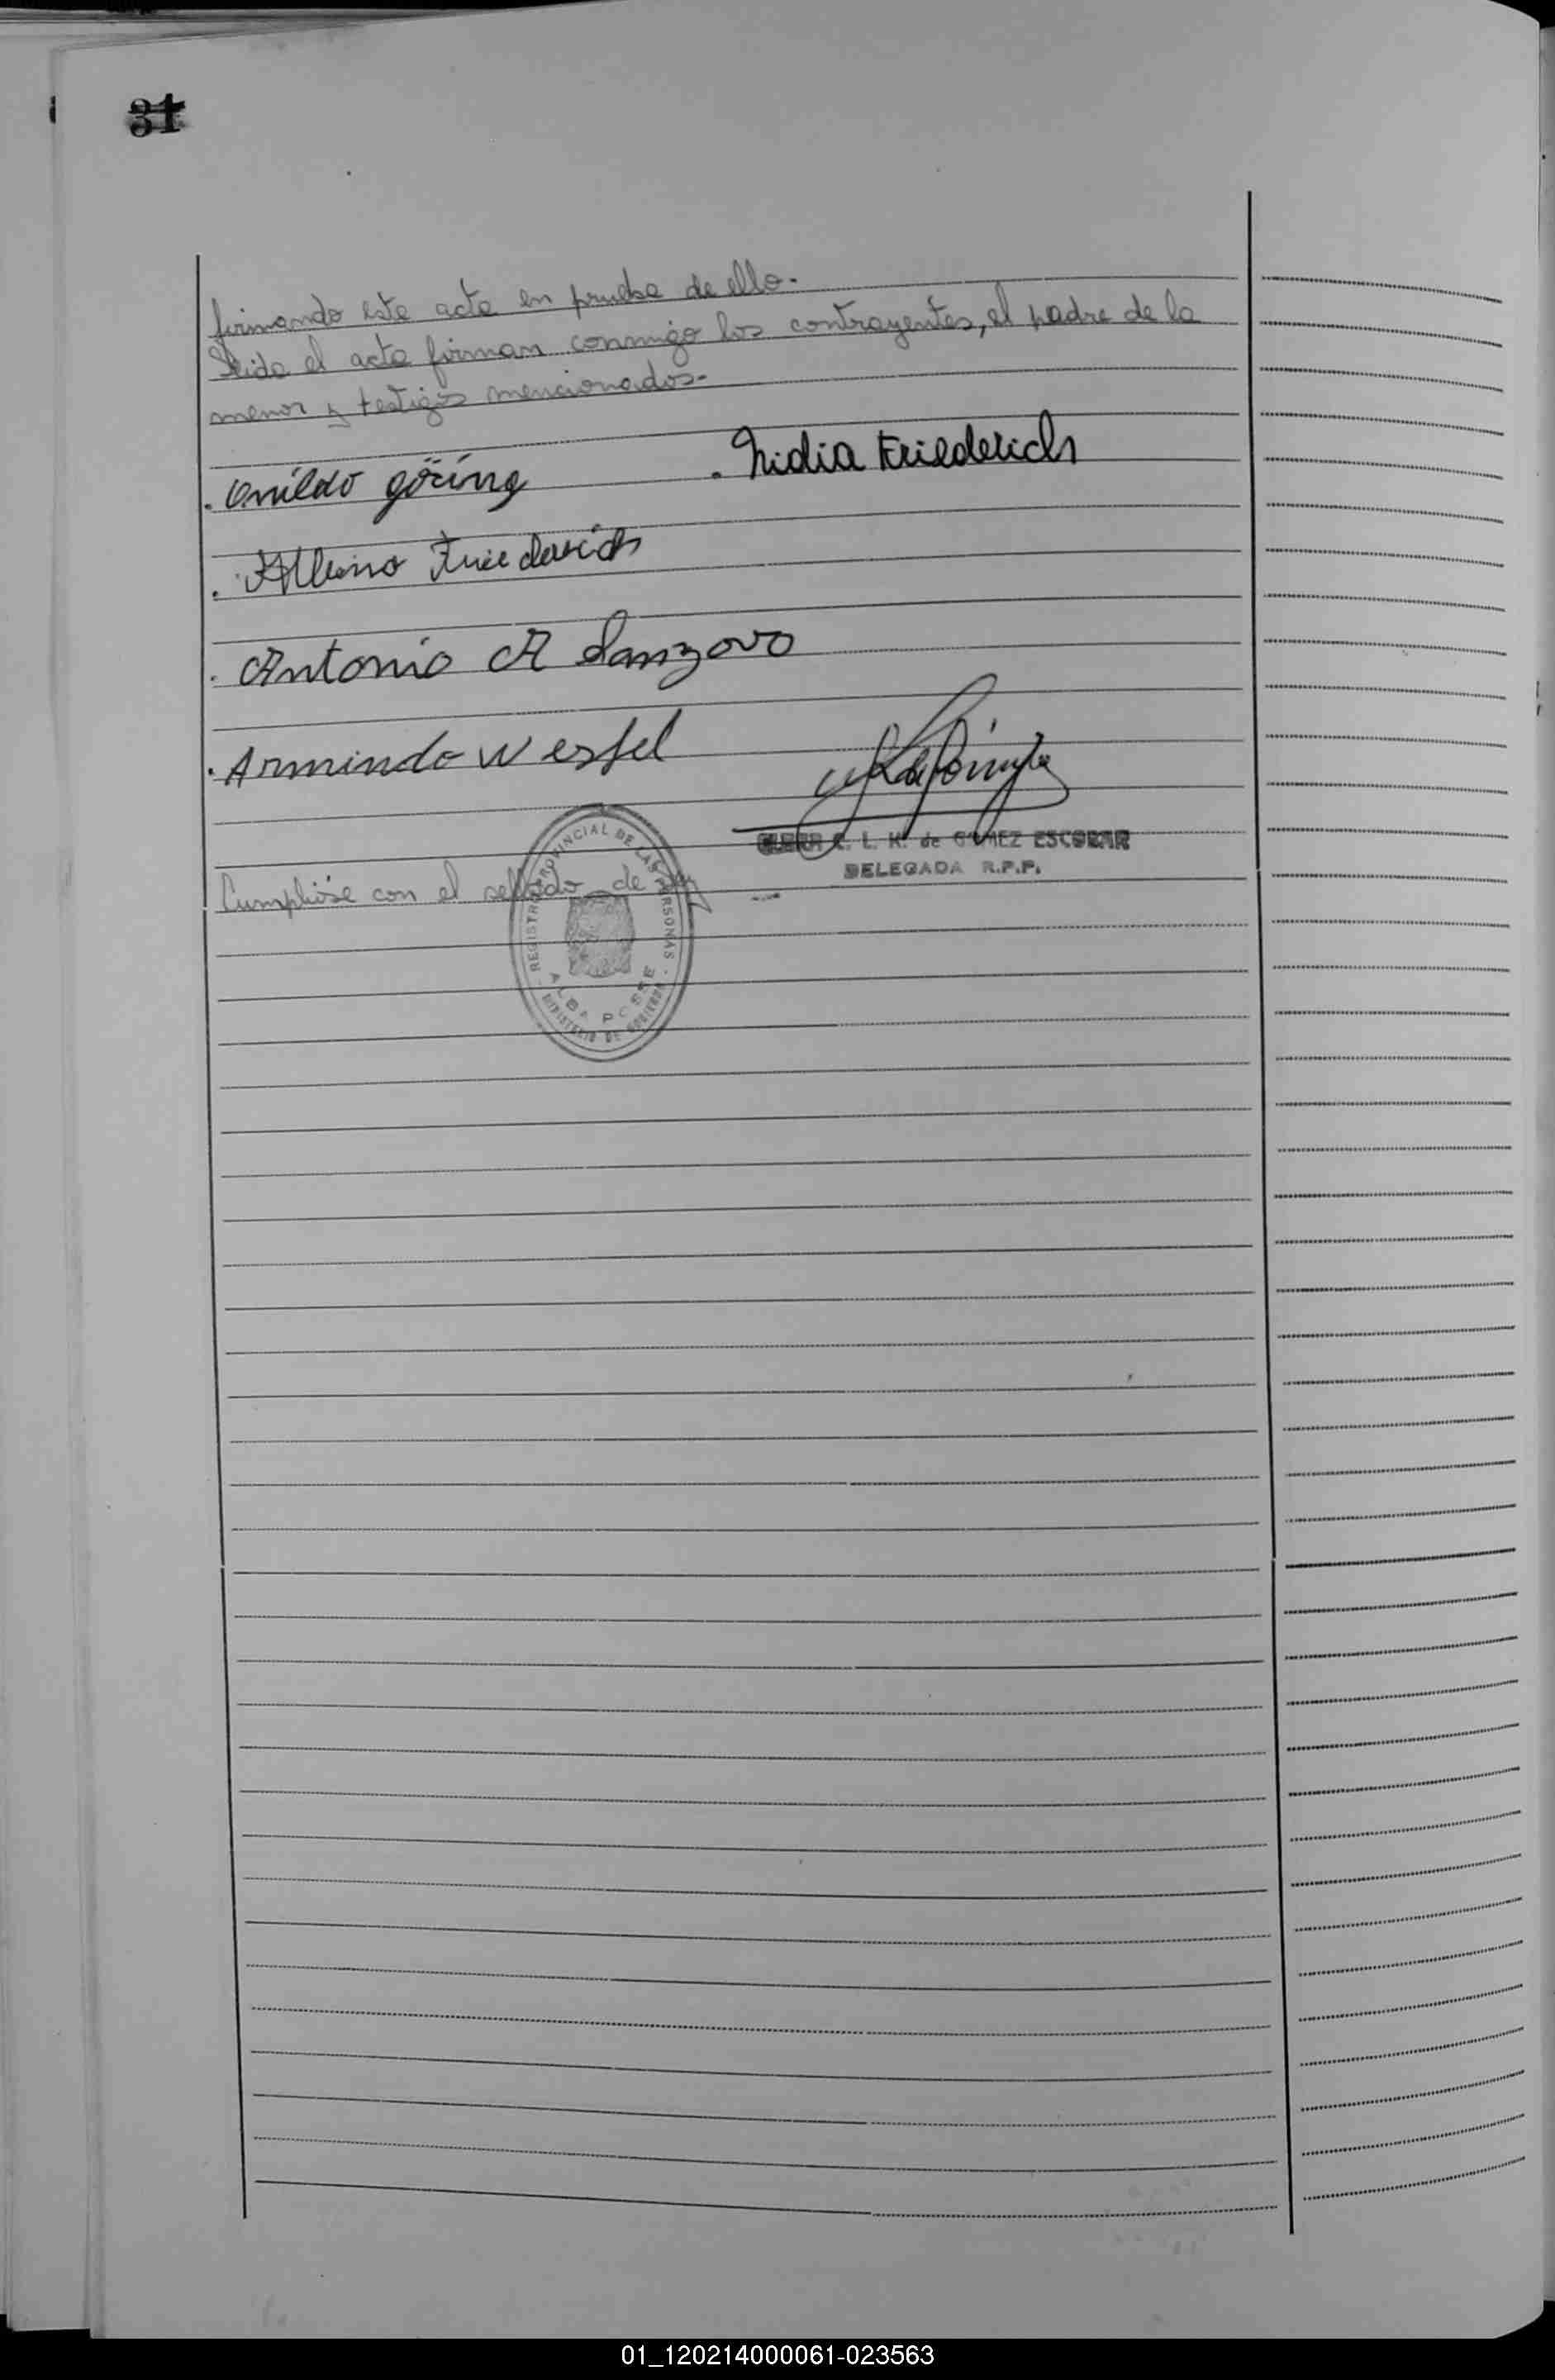 31
firmando este acta en prueba de ello.
Leida el acta firman conmigo los contrayentes, el padre de la
menor y testigos mencionados.-
. Onildo göring . Nidia Friederich
. Albino Friederich
. Antonio A Sanzovo
. Armindo Wesfel
C. L. K. de GOMEZ ESCOBAR
DELEGADA R.P.P.
Cumplióse con el sellado de ley
REGISTRO PROVINCIAL DE LAS PERSONAS
ALBA POSSE
MINISTERIO DE GOBIERNO
01_120214000061-023563